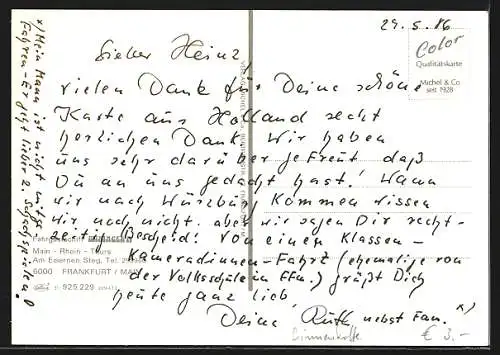 29.5.86
Color
Qualitätskarte
Michel & Co
seit 1928
Lieber Heinz!
vielen Dank für Deine schöne
Karte aus Holland recht
herzlichen Dank. Wir haben
uns sehr darüber gefreut daß
Du an uns gedacht hast! Wann
wir nach Würzburg kommen wissen
wir noch nicht, aber wir sagen Dir recht-
zeitig Bescheid! Von einer Klassen-
Kameradinnen-Fahrt (ehemalige von
der Volksschule in Ffm.) grüßt Dich
heute ganz lieb
Deine Ruth nebst Fam. x)
x) Mein Mann ist nicht mitge-
fahren - Er geht lieber z. Schachspielen!
Main - Rhein - Tours
Am Eisernen Steg, Tel.
6000 FRANKFURT / MAIN
925.229
€ 3.-